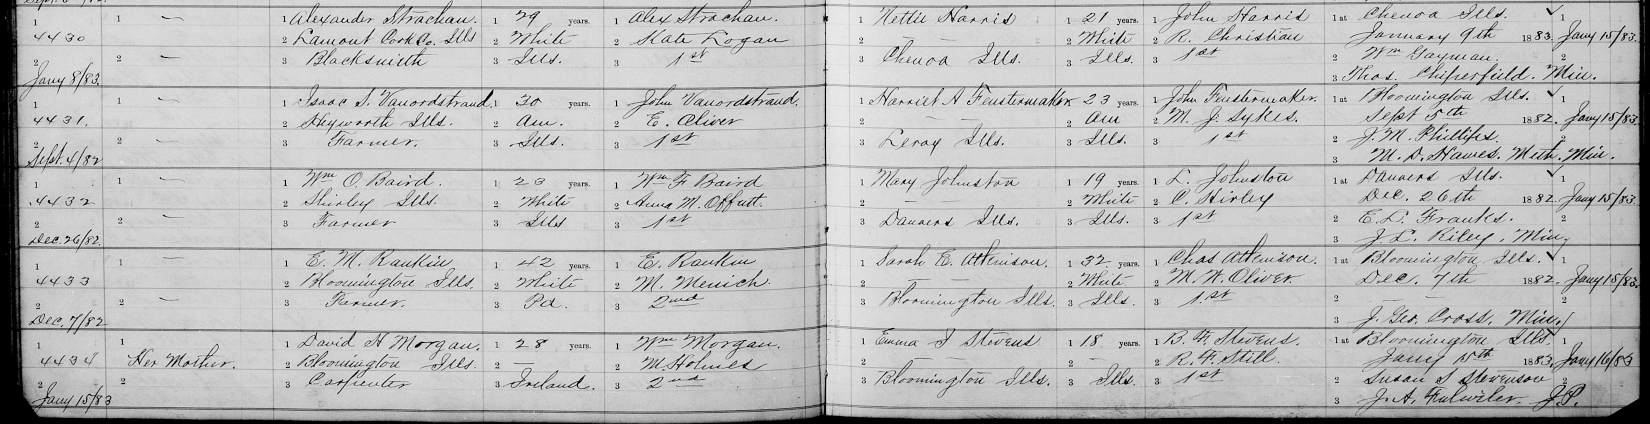 1 — 1 Alexander Strachan. 1 29 years. 1 Alex Strachan. 1 Hettie Harris 1 21 years. 1 John Harris 1st Chenoa Ills. ✓ 1
4430 2 Lamont Cook Co. Ills 2 White 2 Kate Logan 2 — 2 White 2 R. Christian January 9th 1883. Jany 15/83.
2 2 — 3 Blacksmith 3 Ills. 3 1st 3 Chenoa Ills. 3 Ills. 3 1st 2 Wm Gayman. 2
Jany 8/83. 3 Thos. Chiperfield. Min.
1 1 — 1 Isaac S. Vanordstrand. 1 30 years. 1 John Vanordstrand. 1 Harriet A Fenstermaker 1 23 years. 1 John Fenstermaker. 1st Bloomington Ills. ✓ 1
4431. 2 Heyworth Ills. 2 Am. 2 E. Oliver 2 — 2 Am 2 M. J. Sykes. Sept 5th 1882. Jany 15/83.
2 2 — 3 Farmer. 3 Ills. 3 1st 3 Leroy Ills. 3 Ills. 3 1st 2 J. M. Phillips 2
Sept. 4/82 3 M. D. Hawes. Meth. Min.
1 1 — 1 Wm O. Baird. 1 23 years. 1 Wm F Baird 1 Mary Johnston 1 19 years. 1 L. Johnston 1st Danvers Ills. ✓ 1
4432 2 Shirley Ills. 2 White 2 Anna M. Offutt. 2 — 2 White 2 C. Hirley Dec. 26th 1882. Jany 15/83.
2 2 — 3 Farmer 3 Ills 3 1st 3 Danvers Ills. 3 Ills. 3 1st 2 E. L. Franks. 2
Dec. 26/82. 3 J. L. Riley, Min.
1 1 — 1 E. M. Rankin 1 42 years. 1 E. Rankin 1 Sarah E. Atkinson. 1 32 years. 1 Chas Atkinson. 1st Bloomington Ills. ✓ 1
4433 2 Bloomington Ills. 2 White 2 M. Menich. 2 White 2 M. W. Oliver. Dec. 7th 1882. Jany 15/83.
2 2 — 3 Farmer. 3 Pa. 3 2nd 3 Bloomington Ills. 3 Ills. 3 1st 2 — 2
Dec. 7/82 3 J. Geo. Cross. Min.
1 1 1 David H Morgan. 1 28 years. 1 Wm Morgan. 1 Emma I Stevens 1 18 years. 1 B. F. Stevens. 1st Bloomington Ills. 1
4434 Her Mother. 2 Bloomington Ills. 2 — 2 M. Holmes 2 — 2 — 2 R. F. Still. Jany 15th 1883. Jany 16/83
2 2 3 Carpenter 3 Ireland. 3 2nd 3 Bloomington Ills. 3 Ills. 3 1st 2 Susan S Stevenson 2
Jany 15/83 3 J. A. Fulwiler. J.P.